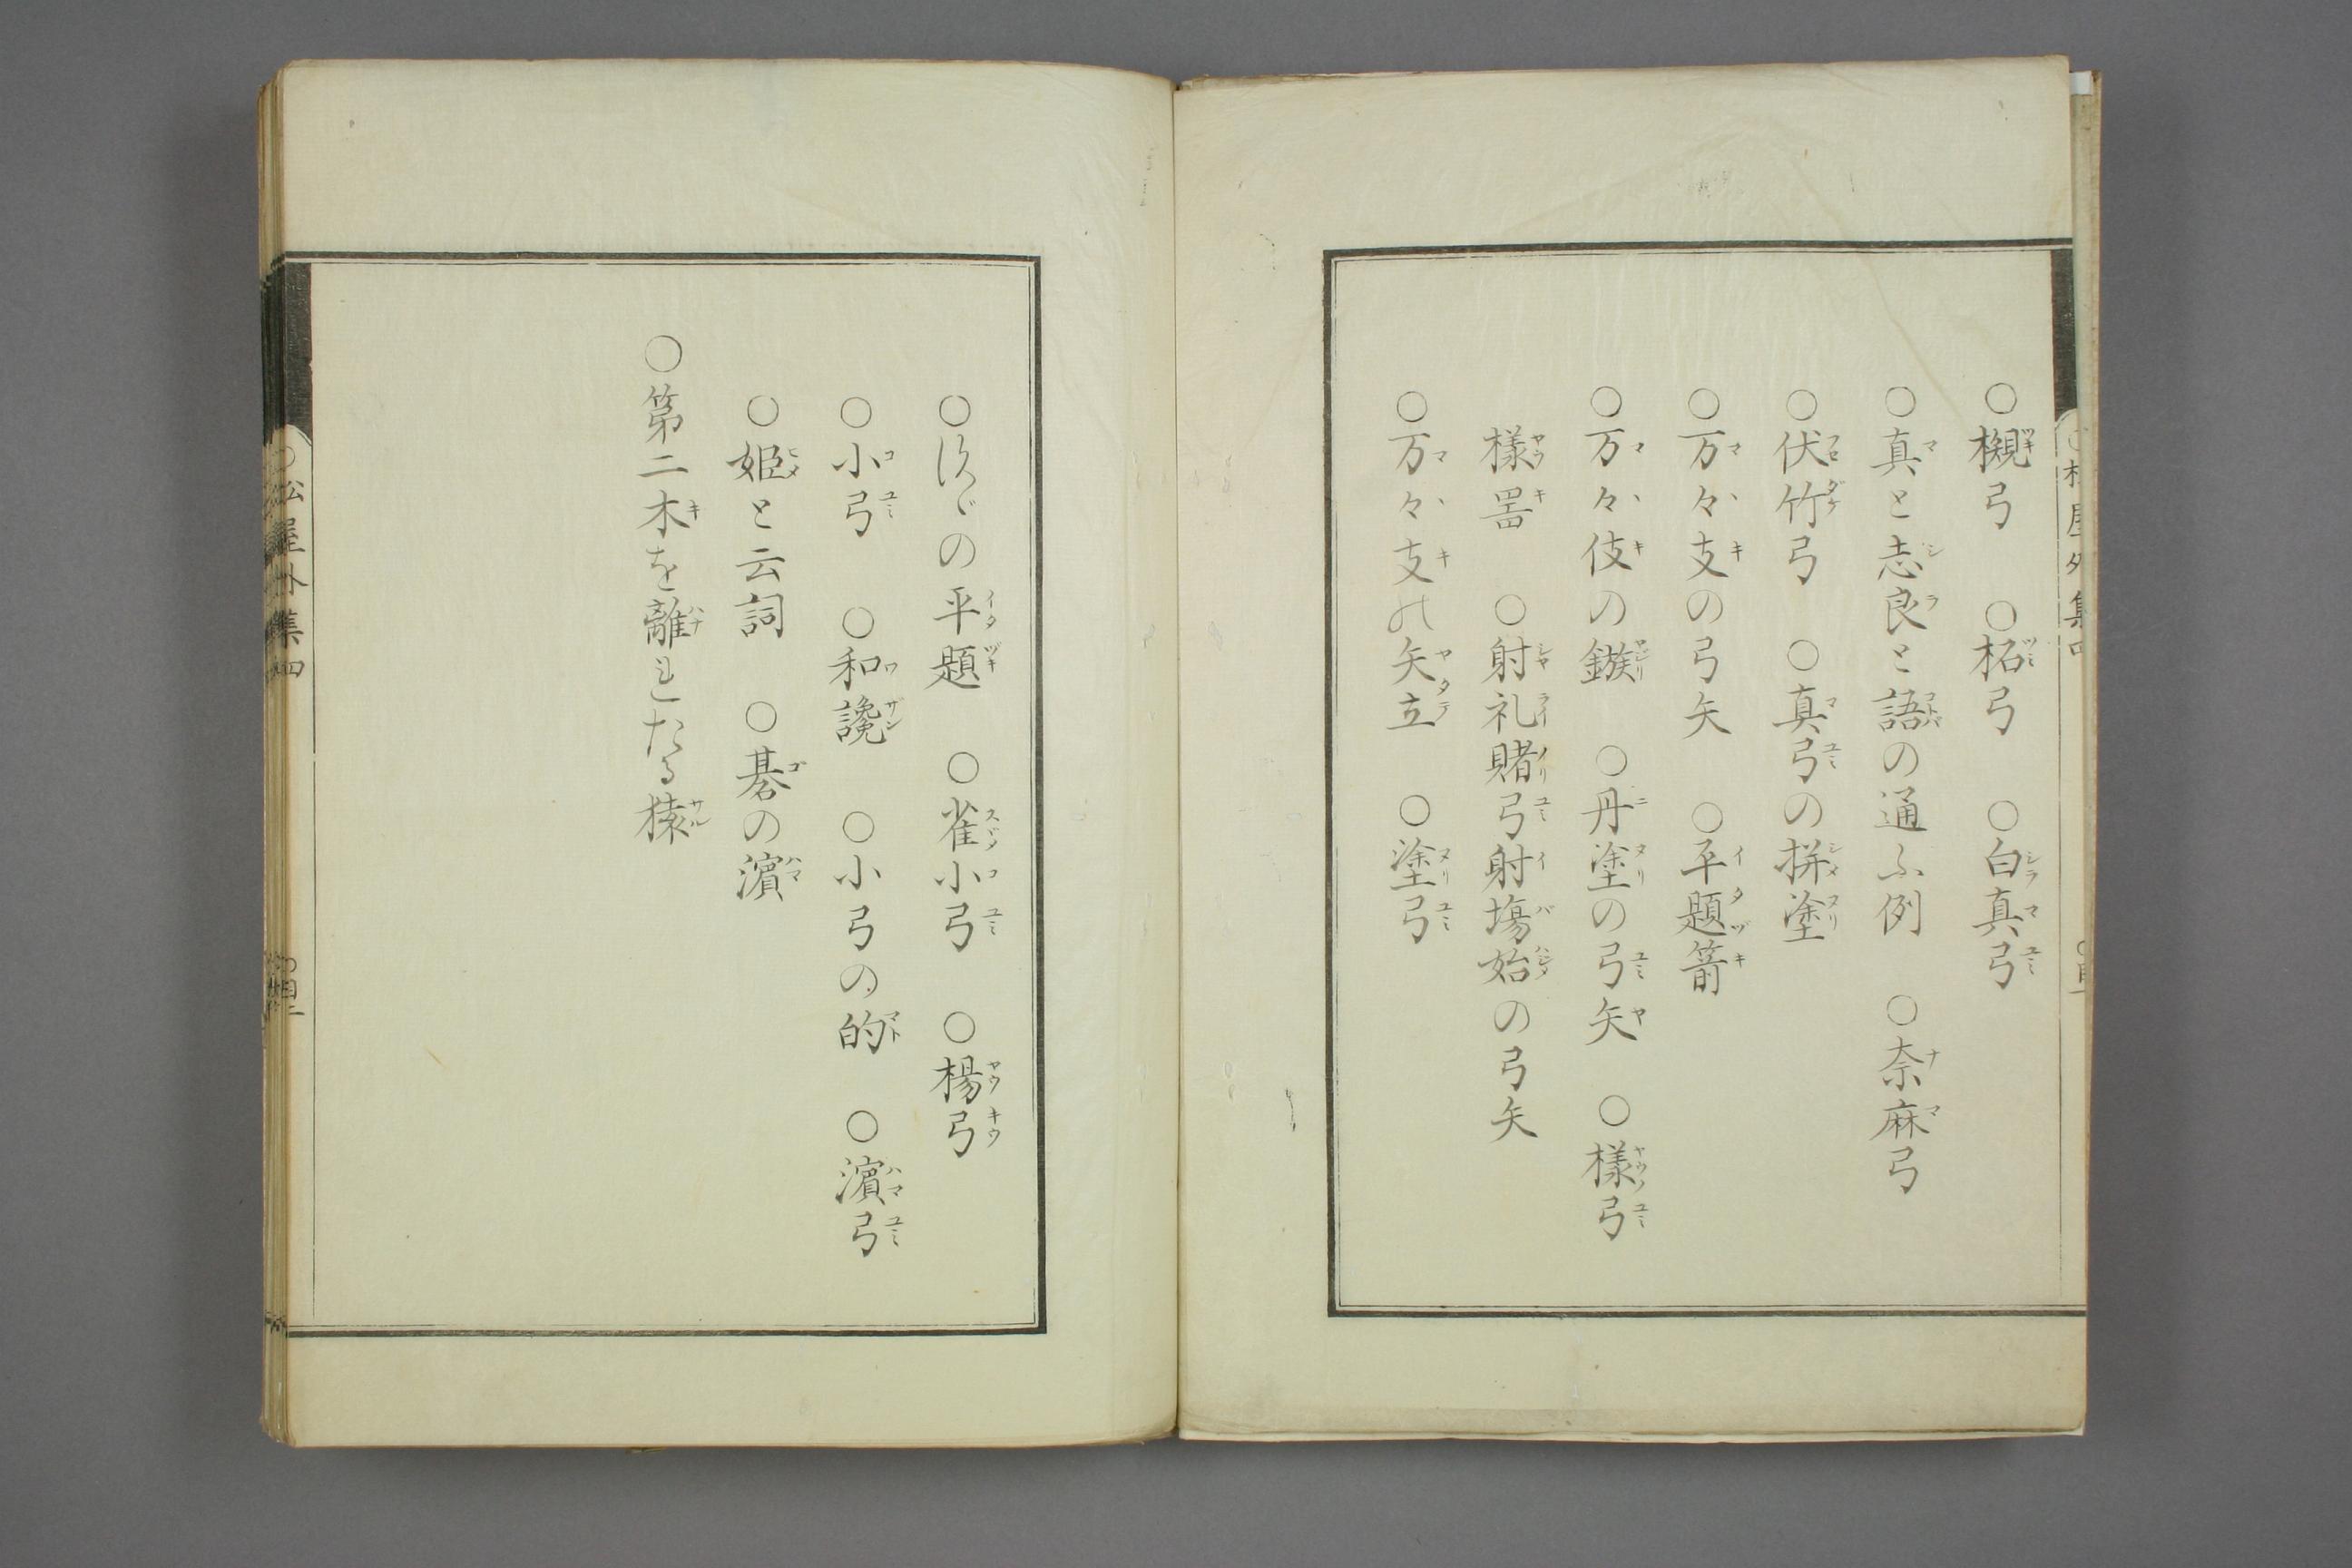 ○槻弓　○柘弓　○白真弓
○真と志良と語の通ふ例　○奈麻弓
○伏竹弓　○真弓の拼塗
○万々支の弓矢　○平題箭
○万々伎の鏃　○丹塗の弓矢　○様弓
様器　○射礼賭弓射塲始の弓矢
○万々支の矢立　○塗弓
の平題　○雀小弓　○楊弓
○小弓　○和讒　○小弓の的　○濵弓
○姫と云詞　○碁の濵
○第二木を離れたる猿
○松屋外集四